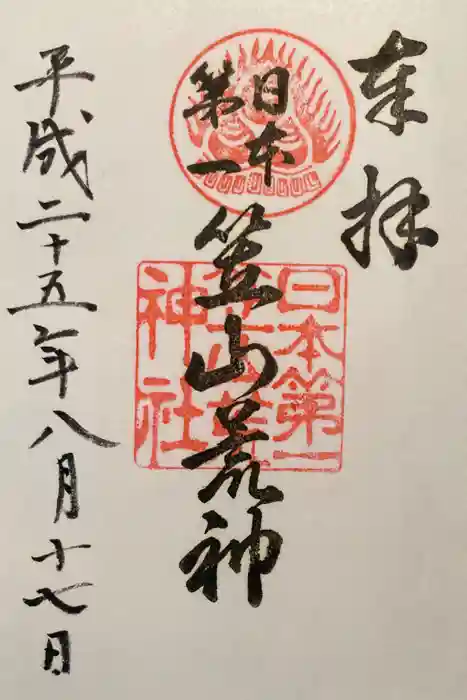 奉拝
日本
第一
笠山荒神
日本第一
笠山荒
神社
平成二十五年八月十七日